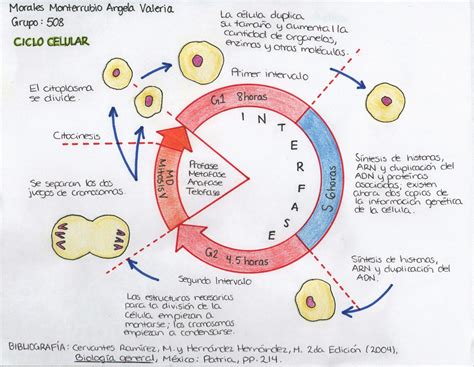 Morales Monterrubio Angela Valeria
Grupo: 508
CICLO CELULAR
La célula duplica
su tamaño y aumental la
cantidad de organelos,
enzimas y otras moléculas.
Primer intervalo
El citoplasma
se divide.
Citocinesis
G1 8 horas
INTERFASE
S 6 horas
G2 4.5 horas
MD
Mitosis
Profase
Metafase
Anafase
Telofase
Síntesis de histonas,
ADN y duplicación del
ADN y proteínas
asociadas; existen
ahora dos copias de
la información genética
de la célula.
Se separan los dos
juegos de cromosomas.
Síntesis de histonas,
ARN y duplicación del
ADN.
Segundo Intervalo
Las estructuras necesarias
para la división de la
célula empiezan a
montarse; los cromosomas
empiezan a condensarse.
BIBLIOGRAFÍA: Cervantes Ramírez, M. y Hernández Hernández, M. 2da Edición (2004),
Biología general, México: Patria, pp. 214.